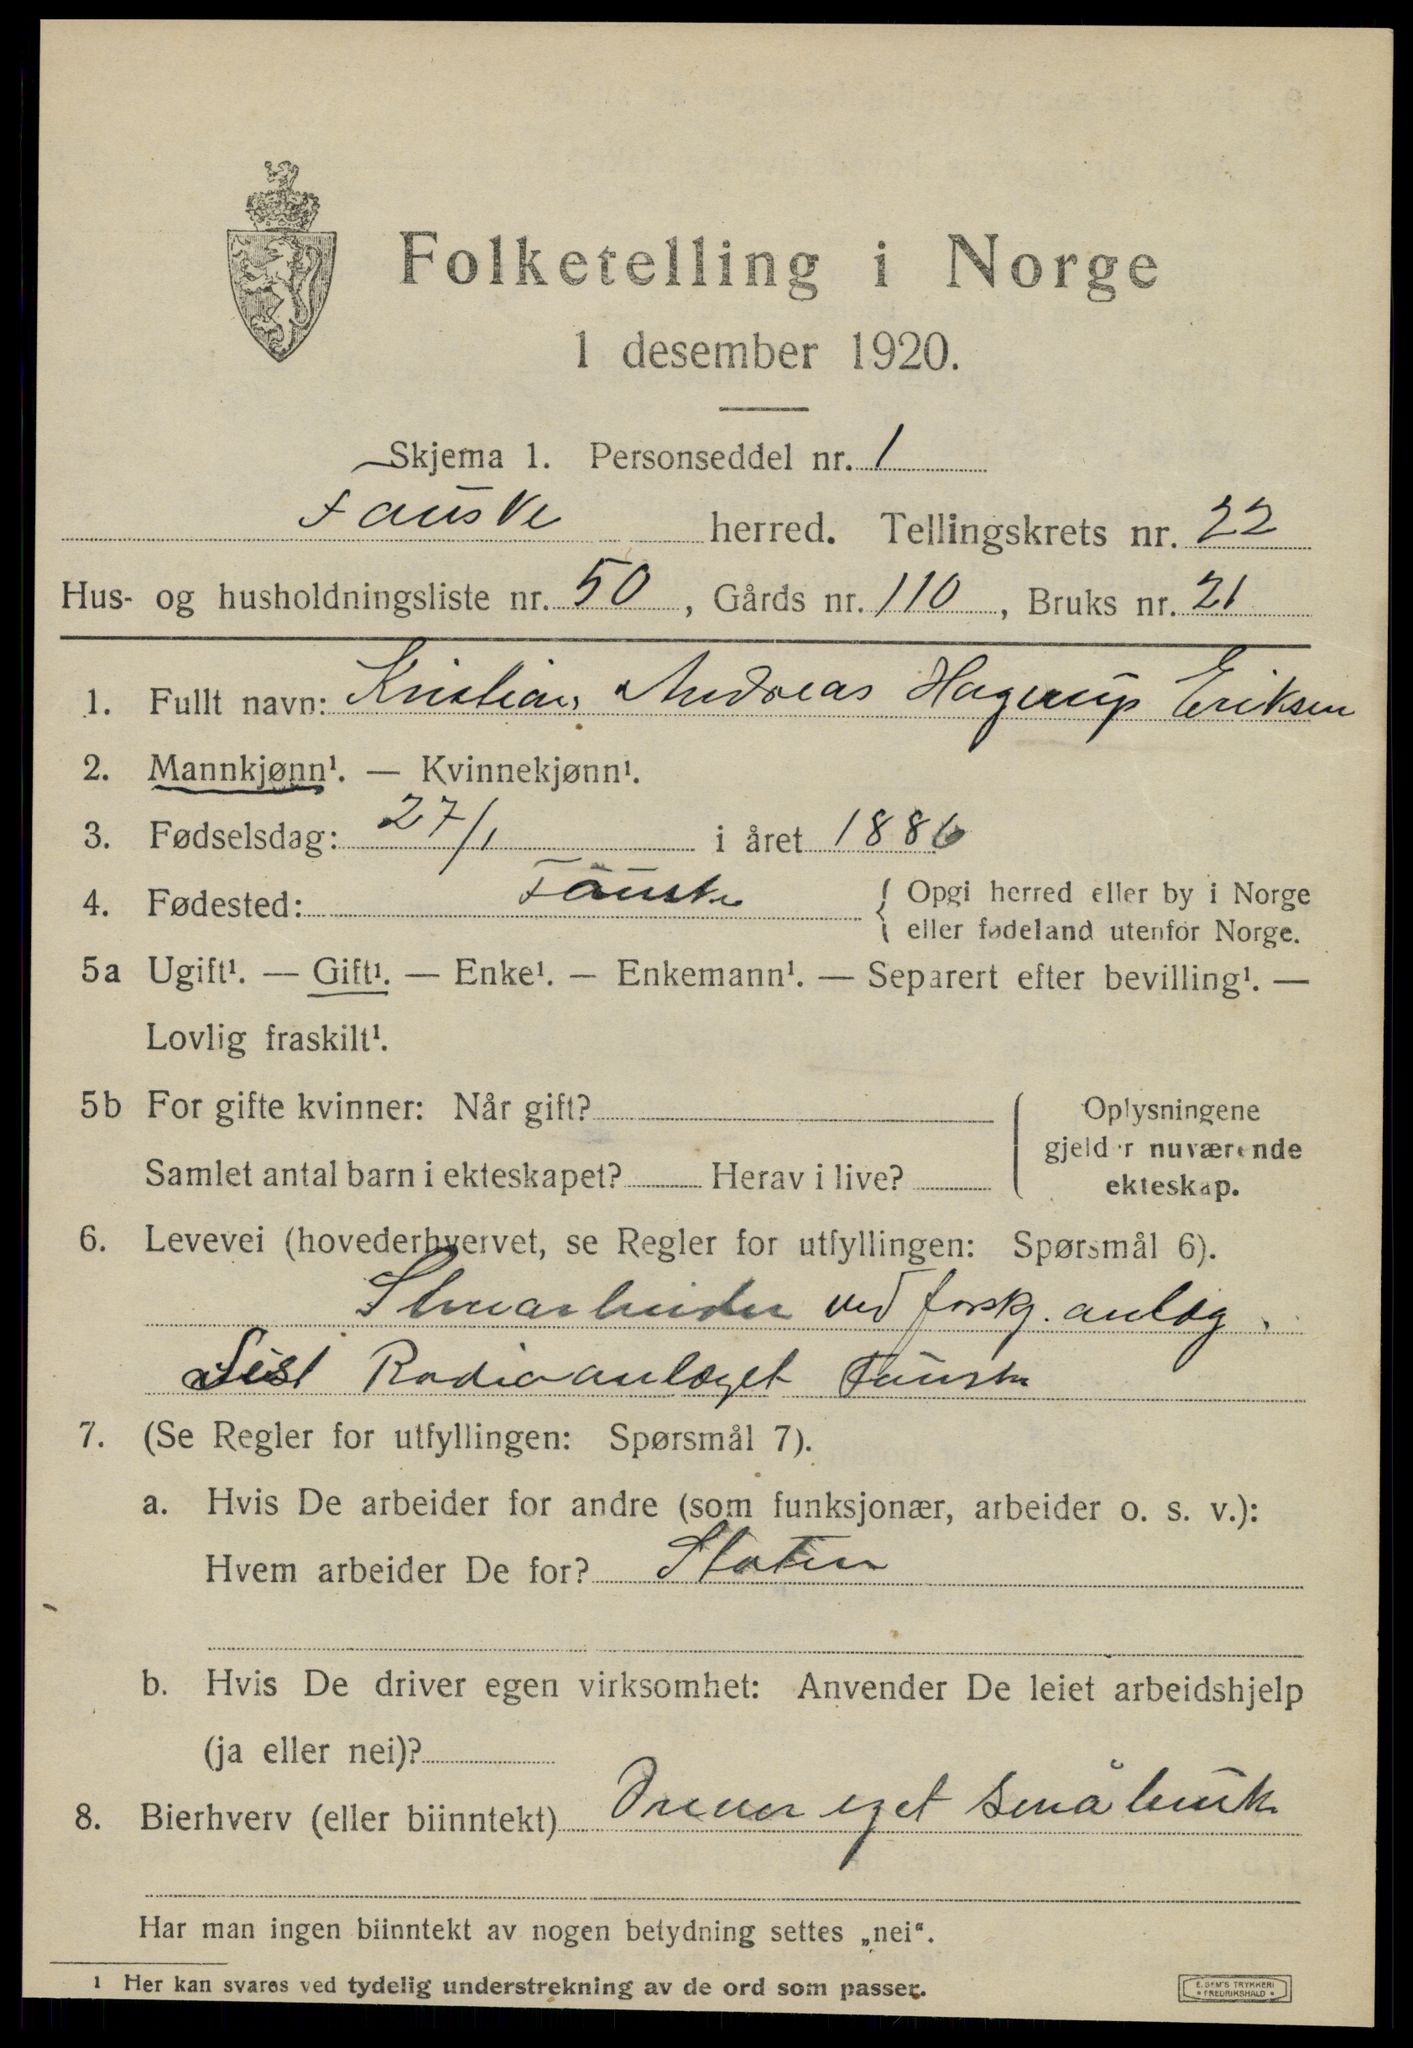 Folketelling i Norge
1 desember 1920.
Skjema 1. Personseddel nr. 1
Fauske herred. Tellingskrets nr. 22
Hus- og husholdningsliste nr. 50, Gårds nr. 110, Bruks nr. 21
1. Fullt navn: Kristian Andreas Hagerup Eriksen
2. Mannkjønn¹. — Kvinnekjønn¹.
3. Fødselsdag: 27/1 i året 1886
4. Fødested: Fauske { Opgi herred eller by i Norge
eller fødeland utenfor Norge.
5a Ugift¹. — Gift¹. — Enke¹. — Enkemann¹. — Separert efter bevilling¹. —
Lovlig fraskilt¹.
5b For gifte kvinner: Når gift?
Samlet antal barn i ekteskapet? Herav i live?
Oplysningene
gjelder nuværende
ekteskap.
6. Levevei (hovederhvervet, se Regler for utfyllingen: Spørsmål 6).
ved forskj. anlæg.
Sist Radioanlæget Fauske
7. (Se Regler for utfyllingen: Spørsmål 7).
a. Hvis De arbeider for andre (som funksjonær, arbeider o. s. v.):
Hvem arbeider De for? Staten
b. Hvis De driver egen virksomhet: Anvender De leiet arbeidshjelp
(ja eller nei)?
8. Bierhverv (eller biinntekt) Driver eget småbruk
Har man ingen biinntekt av nogen betydning settes „nei“.
1 Her kan svares ved tydelig understrekning av de ord som passer.
E. SEM'S TRYKKERI
* FREDRIKSHALD *